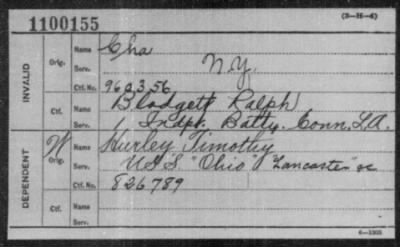 (3-H-4)
1100155
INVALID
Orig.
Name Cha
Serv. N.Y.
Ctf. No. 960356
Ctf.
Name Blodgett Ralph
Serv. 1 Indpt. Batty. Conn. L.A.
DEPENDENT
W
Orig.
Name Hurley Timothy
Serv. U.S.S. "Ohio" "Lancaster" &c
Ctf. No. 826789
Ctf.
Name
Serv.